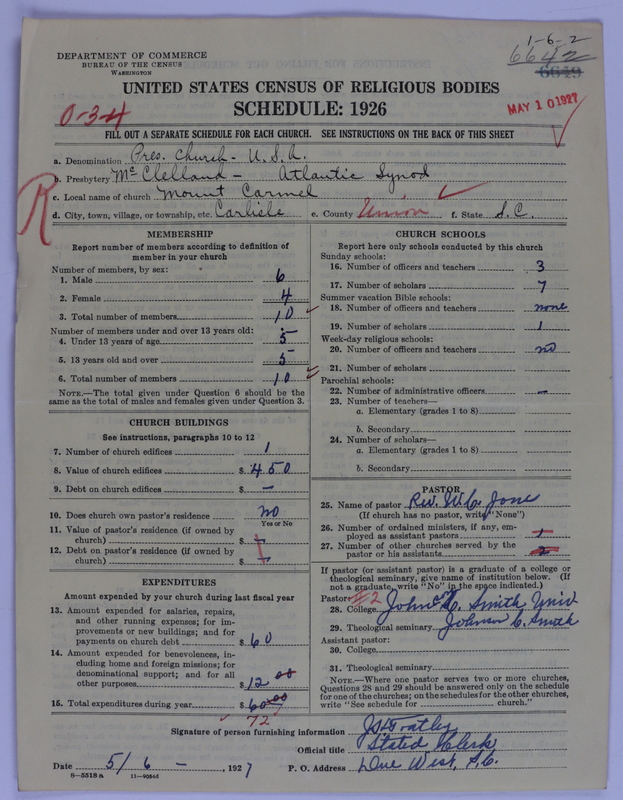 1-6-2
6642
6649
DEPARTMENT OF COMMERCE
BUREAU OF THE CENSUS
WASHINGTON
UNITED STATES CENSUS OF RELIGIOUS BODIES
SCHEDULE: 1926
MAY 10 1927
0-34
FILL OUT A SEPARATE SCHEDULE FOR EACH CHURCH. SEE INSTRUCTIONS ON THE BACK OF THIS SHEET
R
a. Denomination Pres. Church - U.S.A.
b. Presbytery McClelland - Atlantic Synod
c. Local name of church Mount Carmel
d. City, town, village, or township, etc. Carlisle e. County Union f. State S.C.
MEMBERSHIP
Report number of members according to definition of
member in your church
Number of members, by sex:
1. Male 6
2. Female 4
3. Total number of members 10
Number of members under and over 13 years old:
4. Under 13 years of age 5
5. 13 years old and over 5
6. Total number of members 10
NOTE.—The total given under Question 6 should be the
same as the total of males and females given under Question 3.
CHURCH BUILDINGS
See instructions, paragraphs 10 to 12
7. Number of church edifices 1
8. Value of church edifices $ 450
9. Debt on church edifices $ —
10. Does church own pastor's residence no
Yes or No
11. Value of pastor's residence (if owned by
church) $ —
12. Debt on pastor's residence (if owned by
church) $ —
EXPENDITURES
Amount expended by your church during last fiscal year
13. Amount expended for salaries, repairs,
and other running expenses; for im-
provements or new buildings; and for
payments on church debt $ 60
14. Amount expended for benevolences, in-
cluding home and foreign missions; for
denominational support; and for all
other purposes $ 12 00
15. Total expenditures during year $ 60.00
72
CHURCH SCHOOLS
Report here only schools conducted by this church
Sunday schools:
16. Number of officers and teachers 3
17. Number of scholars 7
Summer vacation Bible schools:
18. Number of officers and teachers none
19. Number of scholars 1
Week-day religious schools:
20. Number of officers and teachers no
21. Number of scholars
Parochial schools:
22. Number of administrative officers —
23. Number of teachers—
a. Elementary (grades 1 to 8)
b. Secondary
24. Number of scholars—
a. Elementary (grades 1 to 8)
b. Secondary
PASTOR
25. Name of pastor Rev. W.C. Jone
(If church has no pastor, write "None")
26. Number of ordained ministers, if any, em-
ployed as assistant pastors 1
27. Number of other churches served by the
pastor or his assistants 2
If pastor (or assistant pastor) is a graduate of a college or
theological seminary, give name of institution below. (If
not a graduate, write "No" in the space indicated.)
Pastor: #2
28. College Johnson C. Smith Univ
29. Theological seminary Johnson C. Smith
Assistant pastor:
30. College
31. Theological seminary
NOTE.—Where one pastor serves two or more churches,
Questions 28 and 29 should be answered only on the schedule
for one of the churches; on the schedules for the other churches,
write "See schedule for church."
Signature of person furnishing information
Official title Stated Clerk
Date 5/6 - , 1927 P. O. Address Due West, S.C.
8-5518 a 11-90565